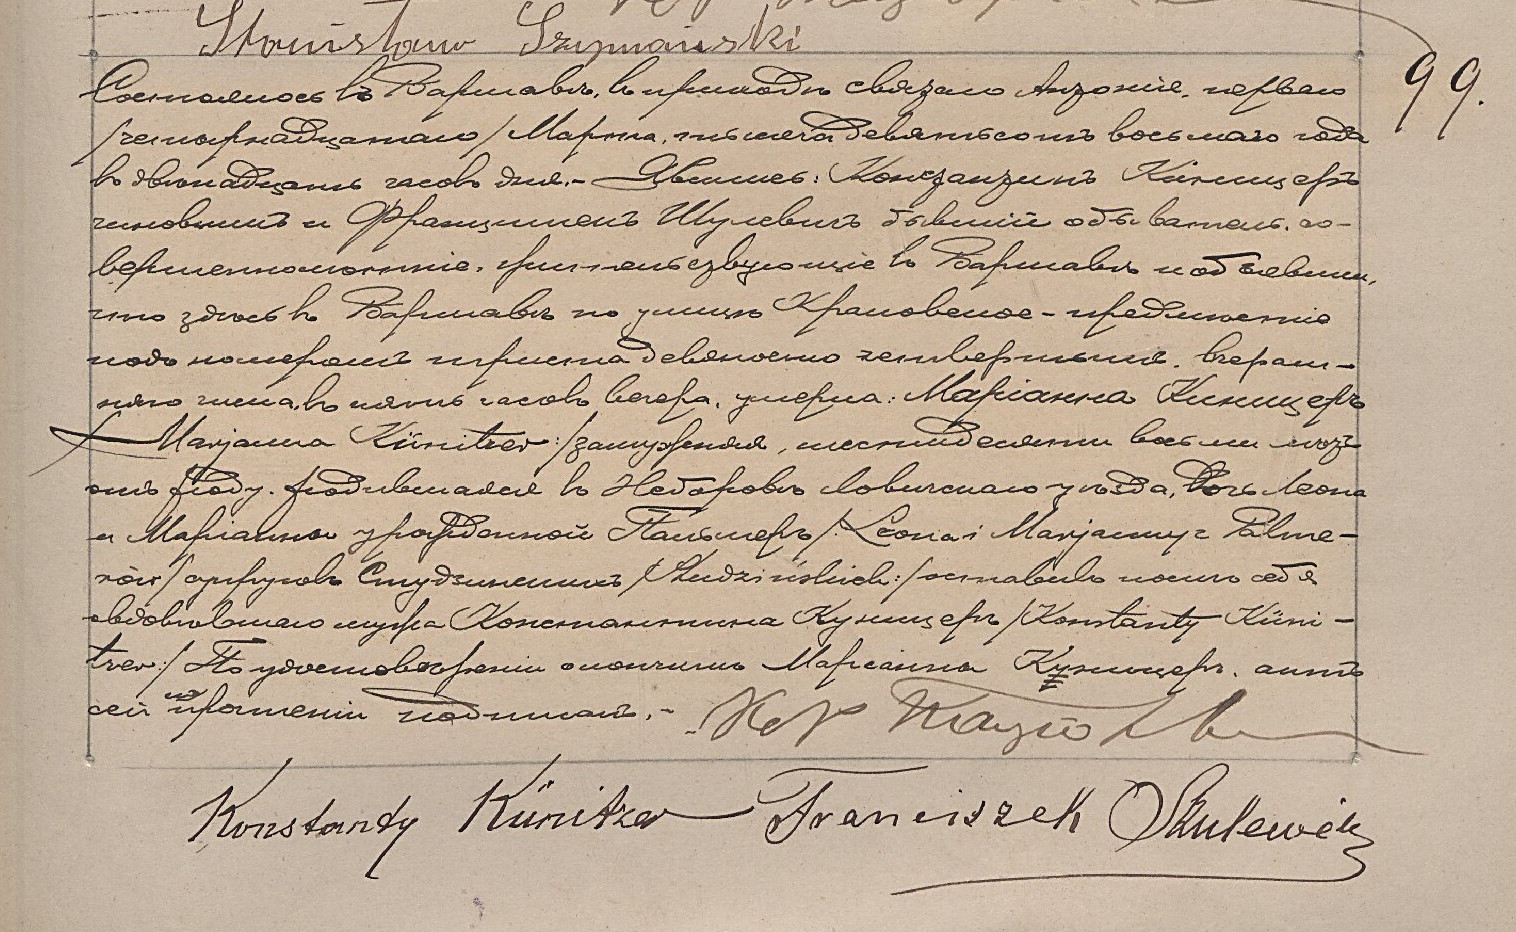 Stanisław Szymański
99.
Состоялось въ Варшавѣ, въ приходѣ святаго Антонія, перваго
/четырнадцатаго/ Марта, тысяча девятьсотъ восьмаго года
въ двѣнадцать часовъ дня.- Явились: Константинъ Киницеръ
чиновникъ и Францишекъ Шулевичъ бывшій обыватель, со-
вершеннолѣтніе, жительствующіе въ Варшавѣ и объявили,
что здѣсь въ Варшавѣ по улицѣ Краковское-предмѣстіе
подъ номеромъ триста девяносто четвертымъ, вчераш-
няго числа, въ пять часовъ вечера, умерла: Маріанна Киницеръ
Marjanna Künitzer:/ замужняя, шестидесяти восьми лѣтъ
отъ роду, родившаяся въ Неборовѣ Ловичскаго уѣзда, дочь Леона
и Маріанны урожденной Пальмеръ /:Leona i Marjanny z Palme-
rów/ супруговъ Студзинскихъ /Studzińskich:/ оставивъ послѣ себя
овдовѣвшаго мужа Константина Куницеръ /Konstanty Küni-
tzer:/ По удостовѣреніи о кончинѣ Маріанны Куницеръ, актъ
сей по прочтеніи подписанъ.-
Konstanty Künitzer Franciszek Szulewicz